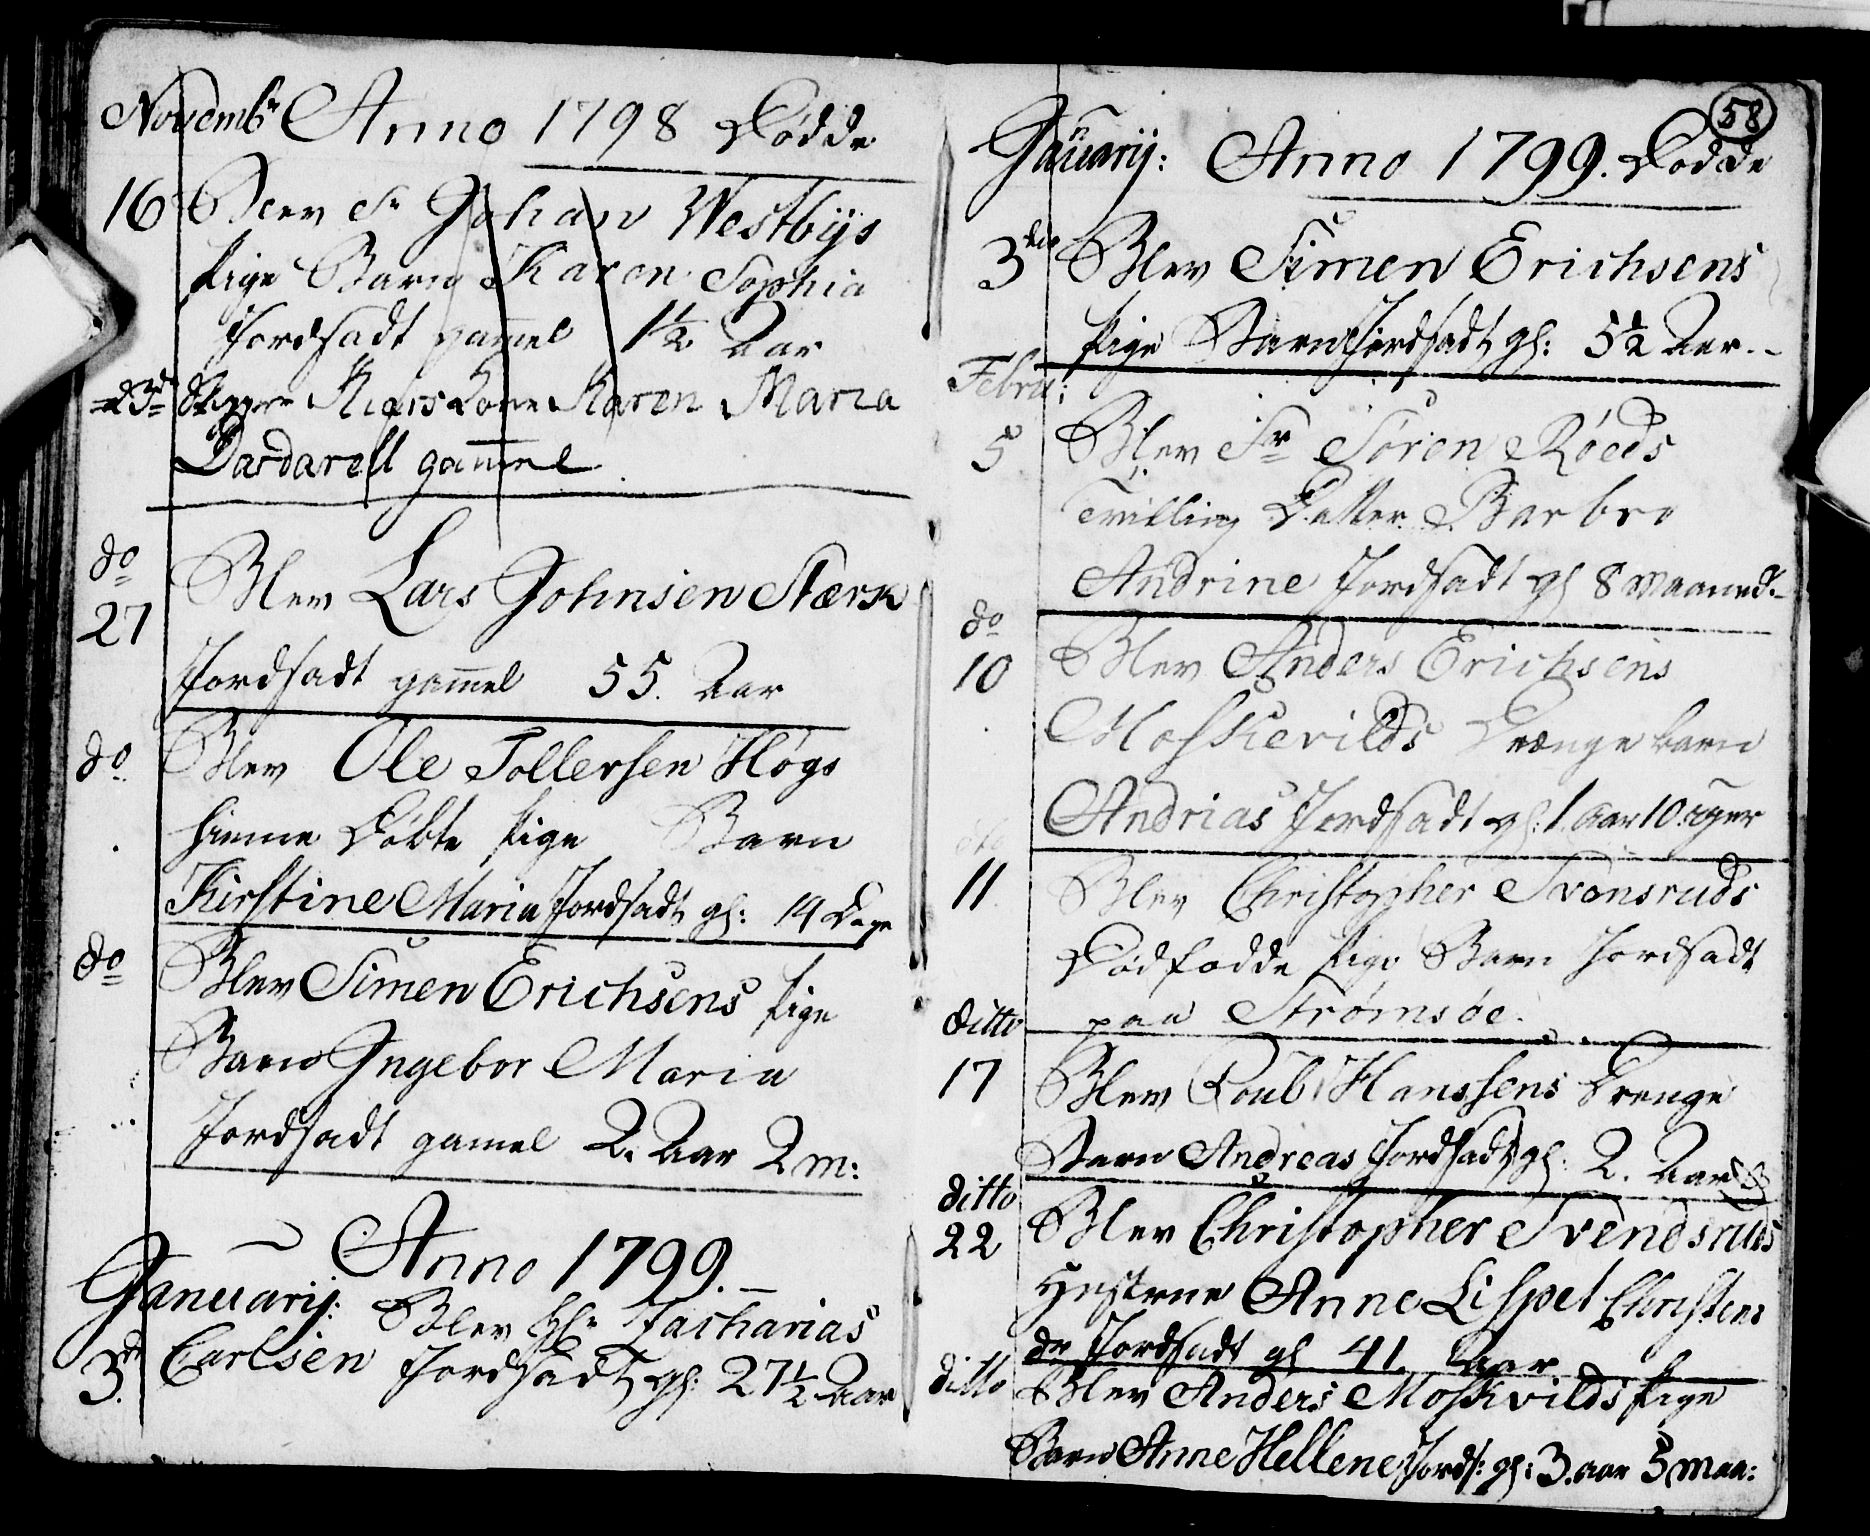 Novembr Anno 1798 Dödde
16 Blev Sr Johan Westbÿs
pige Barn Karen Sophia
Jordsadt gam̄el 1½ Aar
Kiærs Kone Karen Maria
Dardarell gam̄el
do
27 Blev Lars Johnsen Stærk
Jordsadt gam̄el 55. Aar
do Blev Ole Tollersen Høgs
hieme Døbte pige Barn
Kirstine Maria Jordsadt gl: 14 Dage
do Blev Simen Erichsens pige
Barn Ingebor Maria
Jordsadt gamel 2. Aar 2 m:
Anno 1799.
Januarij: Blev Hr Zacharias
3d. Carlsen Jordsadt gl: 27½ Aar
58
Januarij: Anno 1799. Dödde
3die Blev Simen Erichsens
pige Barn Jordsadt gl: 5½ Aar
Febru:
5 Blev Sr Sören Röeds
Tvilling Datter Barbro
Andrine Jordsadt gl 8 Maaned
do
10 Blev Anders Erichsens
Moskievilds Drænge barn
Andrias Jordsadt gl: 1. Aar 10 uger
11 Blev Christopher Svensruds
Dödfödde pige Barn Jordsadt
paa Strømsöe.
ditto
17 Blev Hanssens Drenge
Barn Andreas Jordsadt gl: 2. Aar
ditto
22 Blev Christopher Svendsruds
Hustrue Anne Lispet Christens
dr Jordsadt gl 41. Aar
ditto Blev Anders Moskivilds pige
Barn Anne Hellene Jords: gl: 3. aar 5 maa: